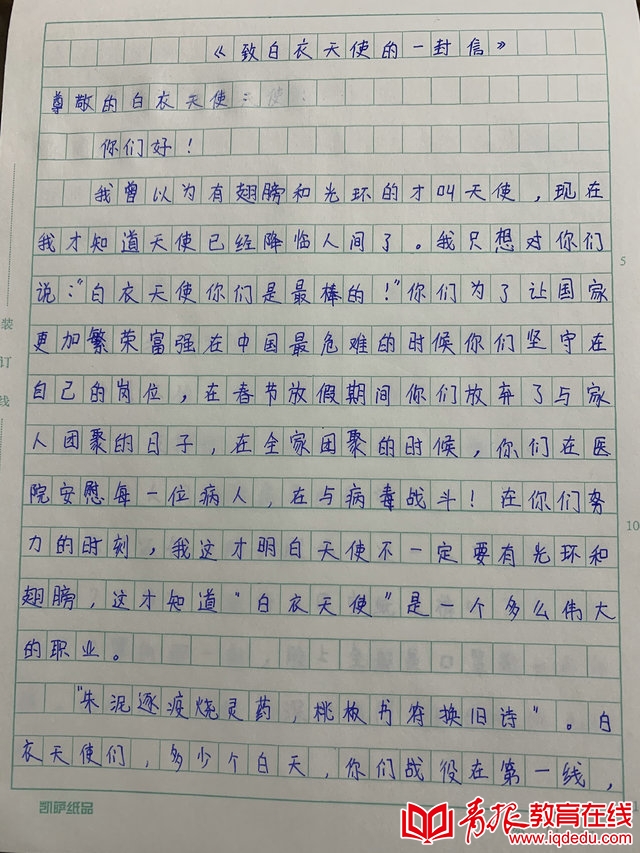 《致白衣天使的一封信》
尊敬的白衣天使：
你们好！
我曾以为有翅膀和光环的才叫天使，现在
我才知道天使已经降临人间了。我只想对你们
说："白衣天使你们是最棒的！"你们为了让国家
更加繁荣富强在中国最危难的时候你们坚守在
自己的岗位，在春节放假期间你们放弃了与家
人团聚的日子，在全家团聚的时候，你们在医
院安慰每一位病人，在与病毒战斗！在你们努
力的时刻，我这才明白天使不一定要有光环和
翅膀，这才知道"白衣天使"是一个多么伟大
的职业。
"朱泥逐疫烧灵药，桃板书符换旧诗"。白
衣天使们，多少个白天，你们战役在第一线，
装
订
线
5
10
凯萨纸品
青报教育在线
www.iqdedu.com